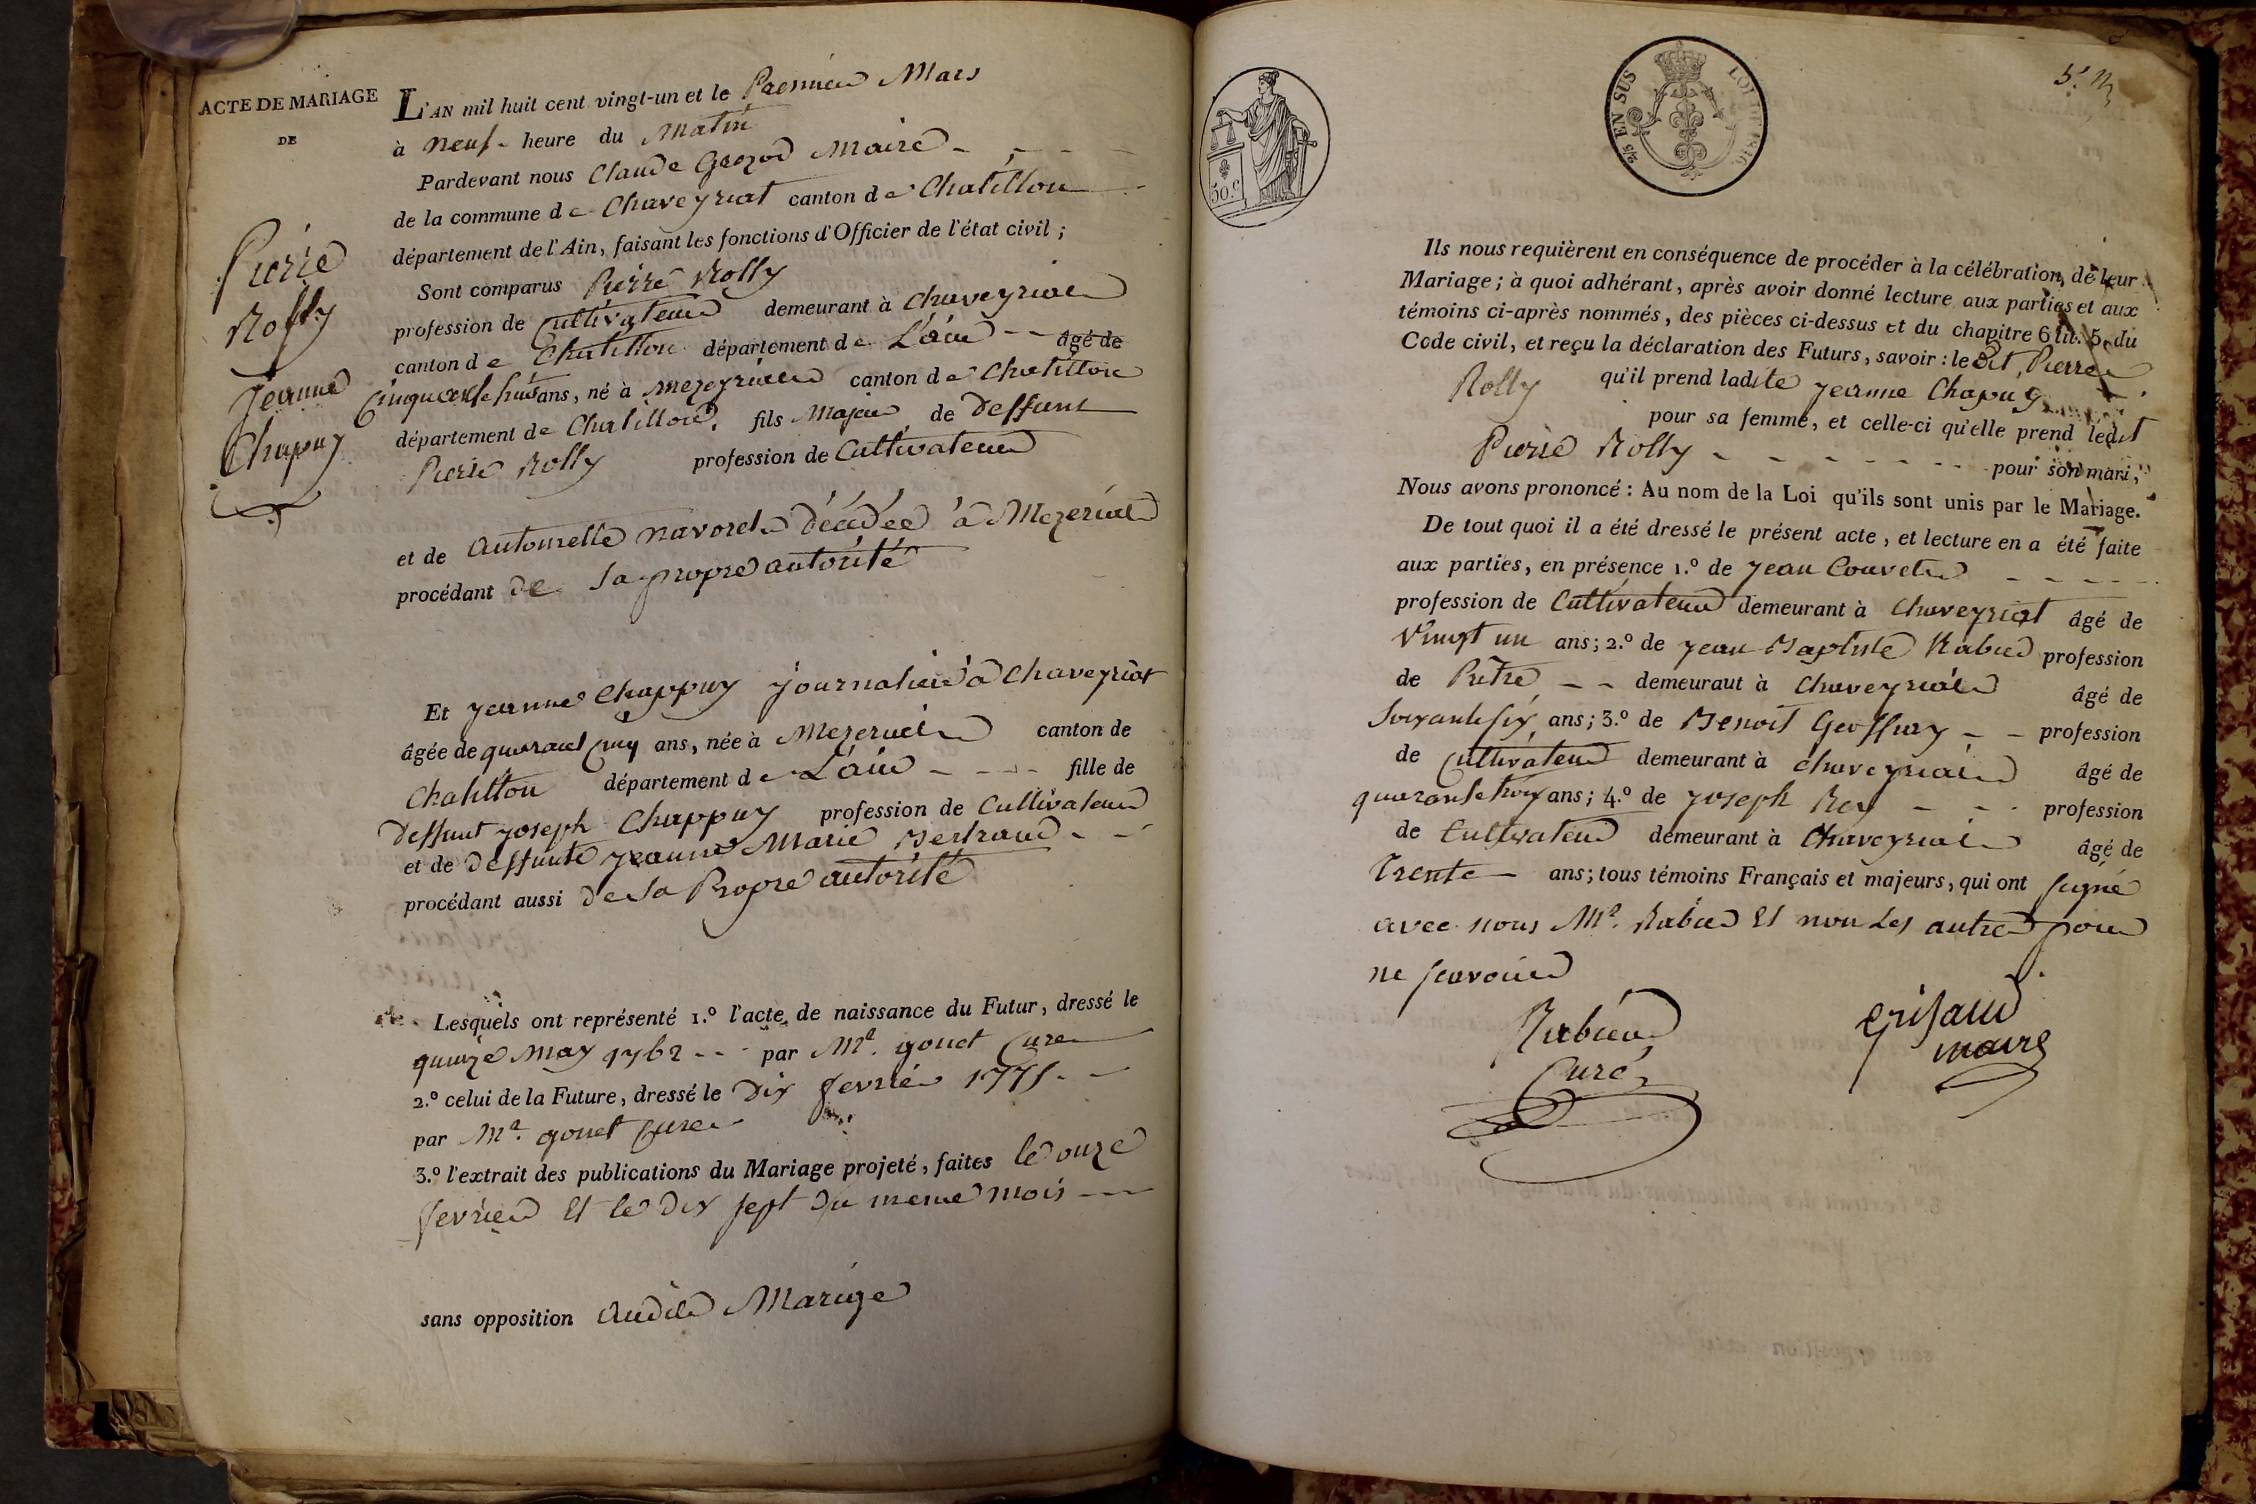 ACTE DE MARIAGE
DE
Pierre
Rolly
Jeanne
Chapuy
L'AN mil huit cent vingt-un et le Premier Mars
à neuf heure du Matin
Pardevant nous Claude Maire
de la commune de Chaveyriat canton de Chatillon
département de l'Ain, faisant les fonctions d'Officier de l'état civil ;
Sont comparus Pierre Rolly
profession de Cultivateur demeurant à Chaveyriat
canton de Chatillon département de L'ain âgé de
Cinquante huit ans, né à Mezeyriat canton de Chatillon
département de Chatillon, fils Majeur de deffunt
Pierre Rolly profession de Cultivateur
et de Antoinette navoret décédée à Mezeriat
procédant de sa propre autorité
Et Jeanne Chappuy journalier à Chaveyriat
âgée de quarant cinq ans, née à Mezeriat canton de
Chatillon département de L'ain fille de
deffunt joseph Chappuy profession de Cultivateur
et de deffunte jeanne Marie Bertrand
procédant aussi de sa Propre autorité
Lesquels ont représenté 1.º l'acte de naissance du Futur, dressé le
quinze May 1762 par Mr. gonet Cure
2.º celui de la Future, dressé le Dix fevrier 1775
par Mr. gonet Cure
3.º l'extrait des publications du Mariage projeté, faites le onze
fevrier Et le dix sept du meme mois
sans opposition audit Mariage
5.
50.c
2/5 EN SUS
LOI DE 1816
Ils nous requièrent en conséquence de procéder à la célébration de leur
Mariage ; à quoi adhérant, après avoir donné lecture aux parties et aux
témoins ci-après nommés, des pièces ci-dessus et du chapitre 6 tit. 5 du
Code civil, et reçu la déclaration des Futurs, savoir : le dit Pierre
Rolly qu'il prend ladite jeanne Chapuy
pour sa femme, et celle-ci qu'elle prend ledit
Pierre Rolly pour son mari,
Nous avons prononcé : Au nom de la Loi qu'ils sont unis par le Mariage.
De tout quoi il a été dressé le présent acte, et lecture en a été faite
aux parties, en présence 1.º de jean Couvet
profession de Cultivateur demeurant à Chaveyriat âgé de
Vingt un ans ; 2.º de jean Baptiste Rabu profession
de Prêtre demeuraut à Chaveyriat âgé de
soixante six ans ; 3.º de Benoit Geoffray profession
de Cultivateur demeurant à Chaveyriat âgé de
quarante trois ans ; 4.º de joseph Rey profession
de Cultivateur demeurant à Chaveyriat âgé de
Trente ans ; tous témoins Français et majeurs, qui ont signé
avec nous Mr. Rabu Et non les autre pour
ne savoir
Curé
maire